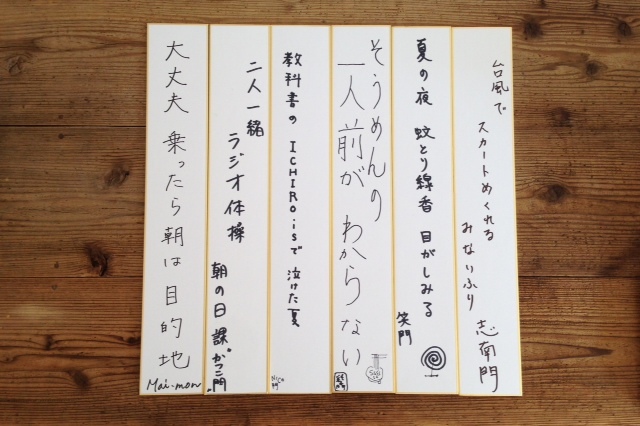 台風で
スカートめくれる
みなりふり
志南門
夏の夜 蚊とり線香 目がしみる
笑門
そうめんの
一人前が わからない
教科書の ICHIRO.isで 泣けた夏
二人一緒
ラジオ体操
朝の日課
大丈夫 乗ったら朝は目的地
Mai-mon